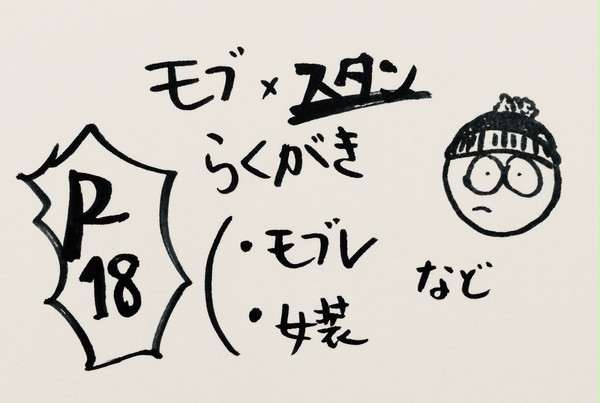 モブ×スタン
らくがき
R
18
・モブレ
・女装
など